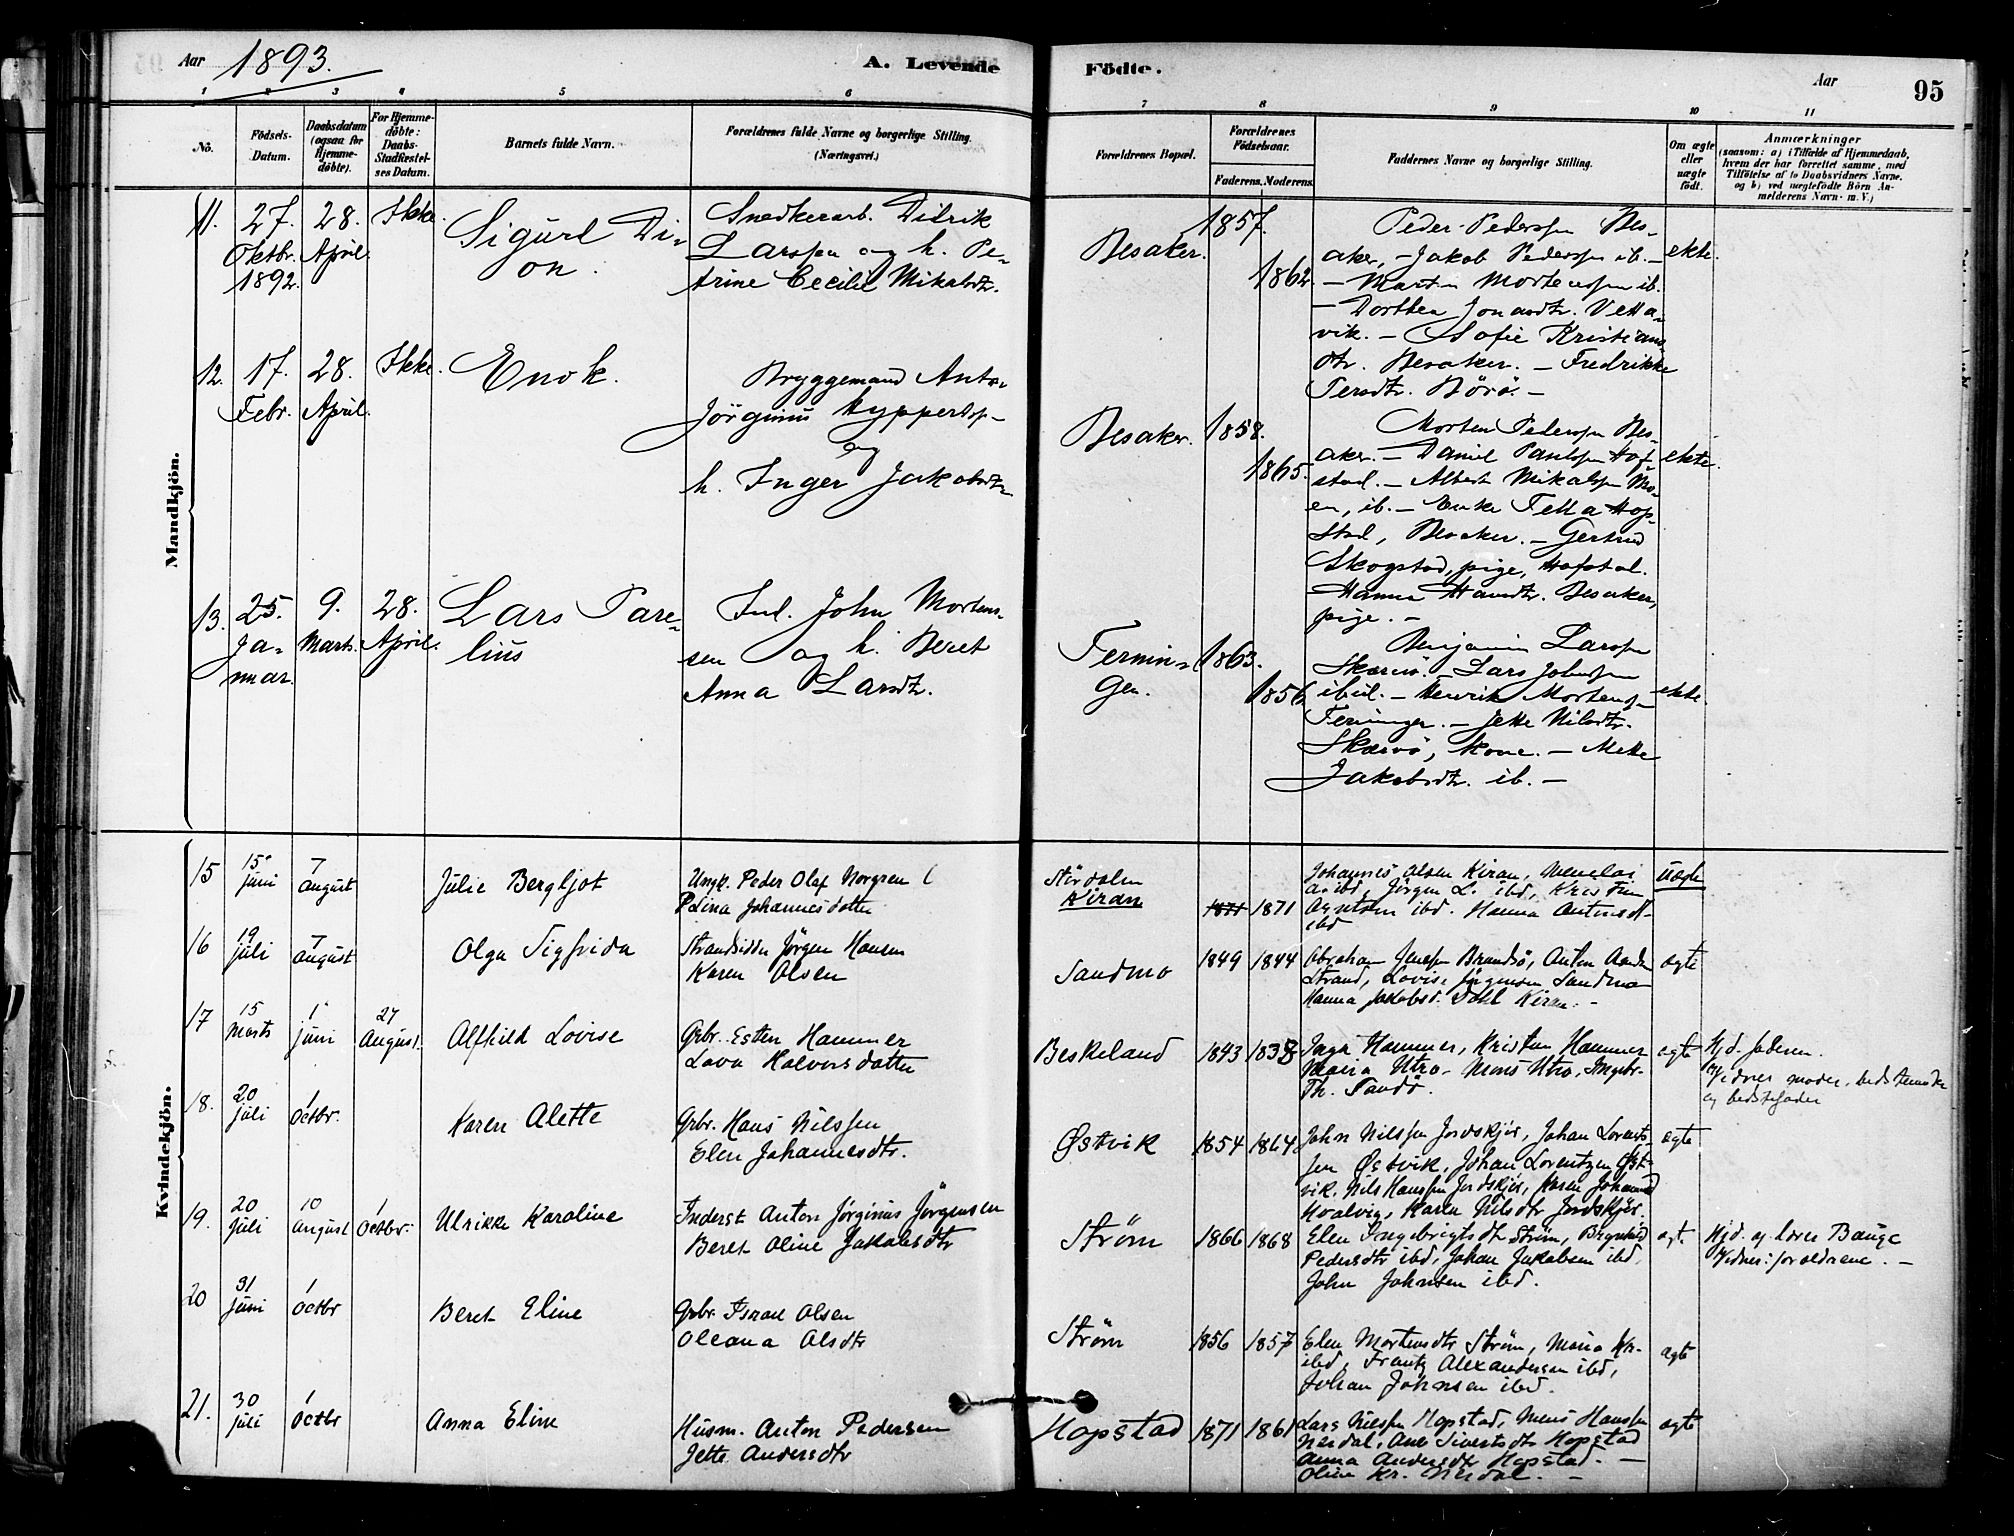 Aar 1893.
A. Levende Födte.
Aar 95
1 2 3 4 5 6 7 8 9 10 11
No.
Födsels-Datum.
Daabsdatum (ogsaa for Hjemme-døbte).
For Hjemme-døbte: Daabs-Stadfæstel-ses Datum.
Barnets fulde Navn.
Forældrenes fulde Navne og borgerlige Stilling. (Næringsvei.)
Forældrenes Bopæl.
Forældrenes Födselsaar.
Faderens. Moderens.
Faddernes Navne og borgerlige Stilling.
Om ægte eller uægte født.
Anmærkninger
(saasom: a) i Tilfælde af Hjemmedaab, hvem der har forrettet samme, med Tilföielse af to Daabsvidners Navne. og b) ved uægtefödte Börn An-melderens Navn m. V.)
Mandkjön.
11. 27. Oktbr. 1892.
28. April.
Ikke.
Sigurd Di-
on.
Snedkerarb. Didrik
Larssen og h. Pe-
trine Cecilie Mikalsdtr.
Besaker.
1857.
1862.
Peder Pederssen Bes-
aker, - Jakob Pederssen ib. -
- Martin Mortenssen ib.
- Dorthea Jonasdtr. Vetta-
vik. - Sofie Kristians
dtr. Besaker. - Fredrikke
Persdtr. Börö. -
ekte.
12. 17. Febr.
28. April.
Ikke.
Enok.
Bryggemand Anton
Jörginus
og
h. Inger Jakobsdtr.
Besaker.
1858.
1865.
Morten Pederssen Bes-
aker. - Daniel Paulssen Hof-
stad. - Albert Mikalssen Mo-
en, ib. - Enke Hop-
stad, Besaker. - Gertrud
Skogstad, pige, Hofstad.
Hanna Besaker,
pige. -
ekte.
13. 25. Ja-
nuar.
9. Marts.
28. April.
Lars Pare-
lius
Ind. John Morten-
sen og h. Beret
Anna Larsdtr.
Termin-
gen.
1863.
1856
Benjamin Larssen
Skarvö. - Lars Johnssen
ibid. - Henrik Mortenss-
Terningen. - Jette Nilsdtr.
Skarvö, kone. - Mette
Jakobsdtr. ib. -
ekte.
Kvindekjön.
15 15 juni
7 august
Julie Bergljot
Ungk. Peder Olaf Norgren
Pelina Johannesdotter
Stördalen
Kiran
1871 1871
Johannes Olsen Kiran,
ibd, Jörgen L. ibd, Kristin
ibd. Hanna
ibd
uægte
16 19 juli
7 august
Olga Sigfrida
Strandsidder Jørgen Hansen
Karen Olsen
Sandmo
1849 1844
Abraham Jenssen Brandsö, Anton
Strand, Lovise Jörgensen Sandmo
Hanna Jakobsd. Dahl Kiran. -
ægte
17 15 Marts
1 juni
27 August.
Alfhild Lovise
Grbr. Esten Hammer
Lava Halvorsdotter
Beskeland
1843 1838
Inga Hammer, Kristen Hammer
Maria Utro, Mons Utro, Ingebr.
Th. Sandö.
ægte
Hjd. faderen.
Vidner moder, bedstemoder
og bedstefader
18. 20 juli
1 Octbr.
Karen Alette
Grbr. Hans Nilssen
Elen Johannesdtr.
Østvik
1854 1864
John Nilssen Jordskjör, Johan Lorent-
sen Østvik, Johan Lorentzen Øst-
vik, Nils Hanssen Jordskjör, Karen
Hvalvig, Karen Nilsdtr Jordskjör.
ægte
19. 20 juli
10 august
1 Octbr.
Ulrikke Karoline
Inderst Anton Jørginius Jørgensen
Beret Oline Jakobsdtr
Strøm
1866 1868
Elen Ingebrigtsdtr Strøm,
Pedersdtr ibd, Johan Jakobsen ibd,
John Johnsen ibd.
ægte
Hjd. af lærer Bauge
Vidner: forældrene. -
20 31 Juni
1 Octbr
Beret Eline
Grbr. Israel Olsen
Oleana Olsdtr
Strøm
1856 1857
Elen Mortensdtr Strøm, Maria Kr.
ibd, Frantz Alexandersen ibd,
Johan Johnsen ibd.
ægte
21. 30 juli
1 Octbr
Anna Eline
Husm. Anton Pedersen
Jette Andersdtr
Hopstad
1871 1861
Lars Nilssen Hopstad, Mons Hanssen
Nerdal, Ane Sivertsdtr Hopstad
Anna Andersdtr Hopstad. -
Oline Kr. Nerdal. -
ægte